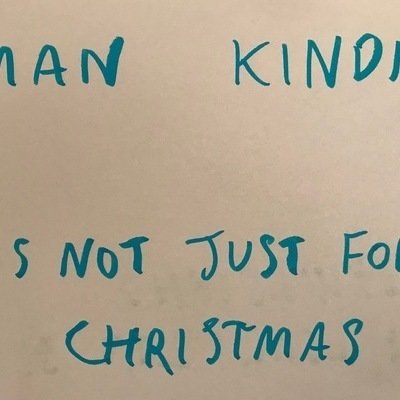 MAN KINDN
S NOT JUST FOR
CHRISTMAS